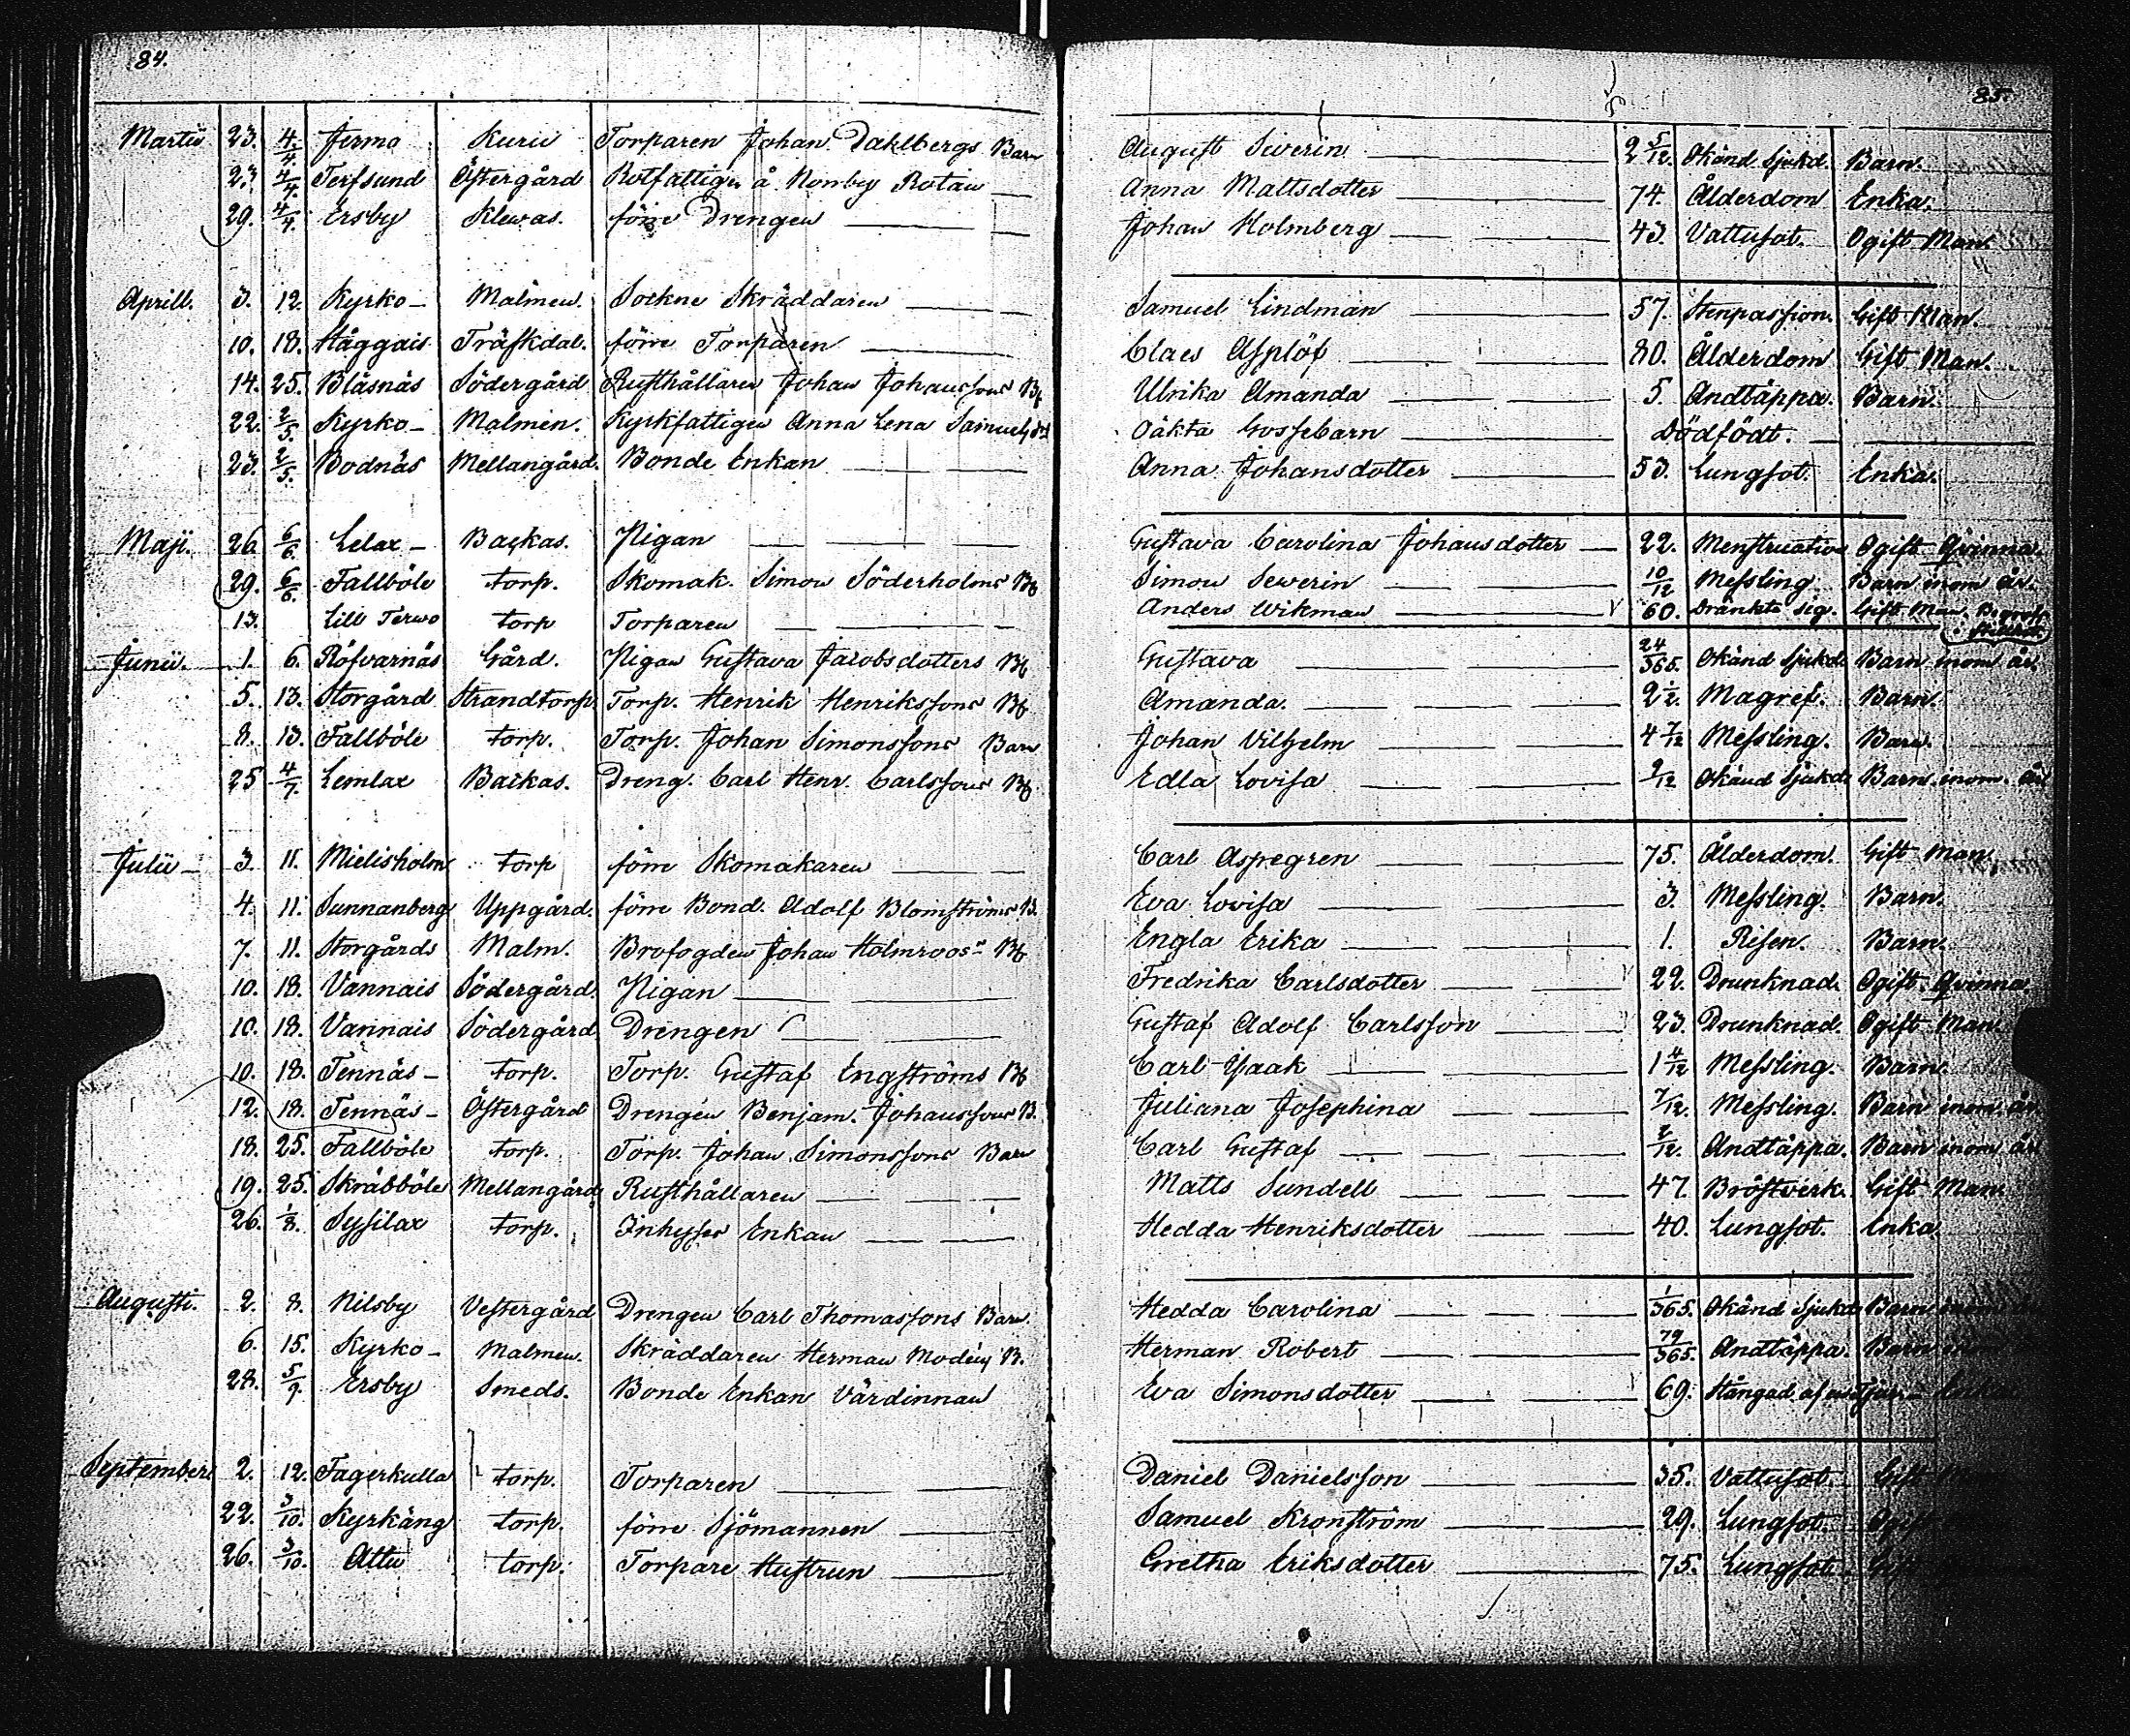 84.
85.
Martii 23. 4/4. Jermo Kurii Torparen Johan Dahlbergs Barn August Siverin 2 5/12. Okänd Sjukd. Barn.
23. 4/4. Terfsund Östergård Rotfattige å Norrby Rotan Anna Mattsdotter 74. Ålderdom Enka.
29. 4/4. Ersby Klewas. förre Drengen Johan Holmberg 43. Vattusot. Ogift Man.
Aprill. 3. 12. Kyrko- Malmen. Sockne Skräddaren Samuel Lindman 57. Stenpassion. Gift Man.
10. 18. Häggais Träskdal. förre Torparen Claes Asplöf 80. Ålderdom Gift Man.
14. 25. Bläsnäs Södergård Rusthållaren Johan Johanssons B. Ulrika Amanda 5. Andtäppa. Barn.
22. 2/5. Kyrko- Malmen. Kyrkfattigen Anna Lena Samuelsd. Oäkta Gossebarn Dödfödt.
23. 2/5. Bodnäs Mellangård. Bonde Enkan Anna Johansdotter 53. Lungsot. Enka.
Maji. 26 6/6. Lelax- Backas. Pigan Gustava Carolina Johansdotter 22. Menstruation Ogift Qvinna.
29. 6/6. Fallböle torp. Skomak. Simon Söderholms B. Simon Sewerin 10/12 Messling. Barn inom år.
13. Lill Terwo torp Torparen Anders Wikman 60. Dränkte sig. Gift Man.
Junii. 1. 6. Röfvarnäs Gård. Pigan Gustava Jacobsdotters B. Gustava 24/365. Okänd Sjukd. Barn inom år.
5. 13. Storgård Strandtorp. Torp. Henrik Henrikssons B. Amanda. 2 1/2. Magref. Barn.
8. 13. Fallböle torp. Torp. Johan Simonssons Barn Johan Vilhelm 4 7/12 Messling. Barn.
25 4/7. Lemlax Backas. Dreng. Carl Henr. Carlssons B. Edla Lovisa 9/12 Okänd Sjukd. Barn inom år
Julii- 3 11. Mielisholm torp förre Skomakaren Carl Aspegren 75. Ålderdom. Gift Man.
4. 11. Sunnanberg Uppgård. förre Bond. Adolf Blomströms B. Eva Lovisa 3. Messling. Barn.
7. 11. Storgårds Malm. Brofogden Johan Holmroos" B. Engla Erika 1. Risen. Barn.
10. 18. Vannais Södergård. Pigan Fredrika Carlsdotter 22. Drunknad. Ogift Qvinna.
10. 18. Vannais Södergård Drengen Gustaf Adolf Carlsson 23. Drunknad. Ogift Man
10. 18. Tennäs- torp. Torp. Gustaf Engströms B. Carl Isaak 1 4/12 Messling. Barn.
12. 18. Tennäs- Östergård Drengen Benjam. Johanssons B. Juliana Josephina 7/12. Messling. Barn inom år
18. 25. Fallböle torp. Torp. Johan Simonssons Barn Carl Gustaf 2/12. Andtäppa. Barn inom år
19. 25. Skräbböle Mellangård Rusthållaren Matts Sundell 47. Bröstverk. Gift Man.
26. 1/8. Sysilax torp. Inhyses Enkan Hedda Henriksdotter 40. Lungsot. Enka
Augusti. 2. 8. Nilsby Vestergård Drengen Carl Thomassons Barn. Hedda Carolina 1/365. Okänd Sjukd. Barn inom
6. 15. Kyrko- Malmen. Skräddaren Herman Modéns B. Herman Robert 79/365. Andtäppa. Barn inom
28. 5/9. Ersby Smeds. Bonde Enkan Värdinnan Eva Simonsdotter 69. Stångad af en Tjur- Enka
September 2. 12. Fagerkulla torp. Torparen Daniel Danielsson 35. Vattusot. Gift
22. 3/10. Kyrkäng torp. förre Sjömannen Samuel Kronström 29. Lungsot. Ogift
26. 3/10. Attu torp. Torpare Hustrun Gretha Eriksdotter 75. Lungsot. Gift